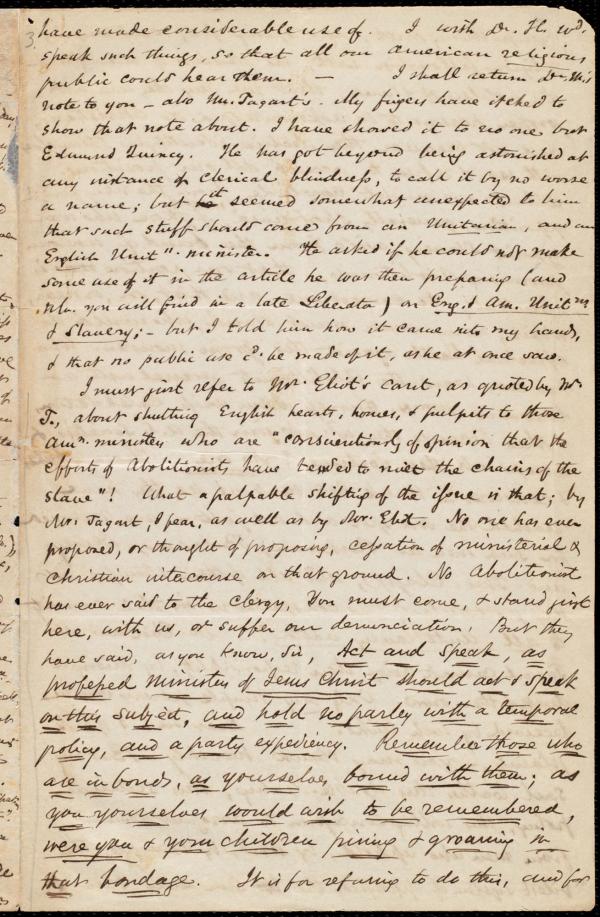 3.
have made considerable use of. I wish Dr. H. wd.
speak such things, so that all our American religious
public could hear them. — I shall return Dr. H's
note to you – also Mr. Tagart's. My fingers have itched to
show that note about. I have showed it to no one but
Edmund Quincy. He has got beyond being astonished at
any instance of clerical blindness, to call it by no worse
a name; but it seemed somewhat unexpected to him
that such stuff should come from an Unitarian, and an
English Unitn. minister. He asked if he could not make
some use of it in the article he was then preparing (and
wh. you will find in a late Liberator) on Eng. & Am. Unitms.
& Slavery; – but I told him how it came into my hands,
& that no public use cd. be made of it, as he at once saw.
I must just refer to Mr. Eliot's cant, as quoted by Mr.
T., about shutting English hearts, homes, & pulpits to those
Amn. ministers who are "conscientiously of opinion that the
efforts of Abolitionists have tended to rivet the chains of the
slave"! What a palpable shifting of the issue is that; by
Mr. Tagart, I fear, as well as by Mr. Eliot. No one has ever
proposed, or thought of proposing, cessation of ministerial &
Christian intercourse on that ground. No Abolitionist
has ever said to the clergy, You must come, & stand just
here, with us, or suffer our denunciation. But they
have said, as you know, Sir, Act and speak, as
professed ministers of Jesus Christ should act & speak
on this subject, and hold no parley with a temporal
policy, and a party expediency. Remember those who
are in bonds, as yourselves bound with them; as
you yourselves would wish to be remembered,
were you & your children pining & groaning in
that bondage. It is for refusing to do this, and for